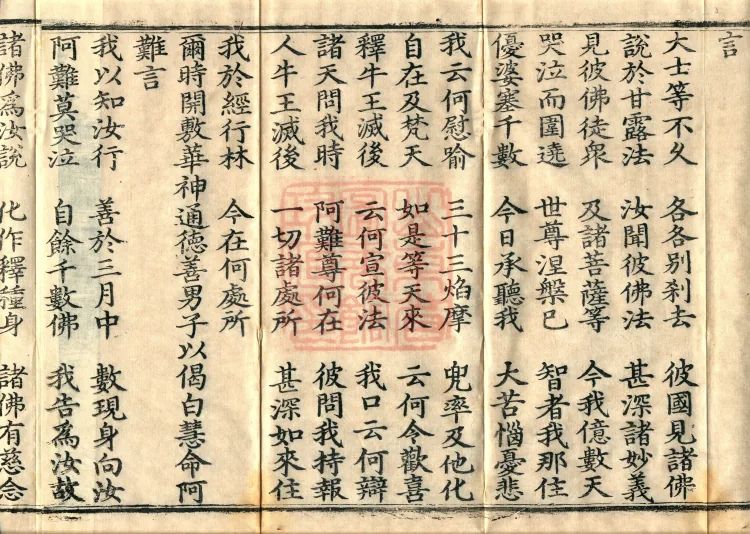 言
大士等不久　各各別刹去　彼國見諸佛
說於甘露法　汝聞彼佛法　甚深諸妙義
見彼佛徒衆　及諸菩薩等　今我億數天
哭泣而圍遶　世尊涅槃已　智者我那住
優婆塞千數　今日承聽我　大苦惱憂悲
我云何慰喻　三十三焰摩　兜率及他化
自在及梵天　如是等天來　云何令歡喜
釋牛王滅後　云何宣彼法　我口云何辯
諸天問我時　阿難尊何在　彼問我持報
人牛王滅後　一切諸處所　甚深如來住
我於經行林　今在何處所
爾時開敷華神通德善男子以偈白慧命阿
難言
我以知汝行　善於三月中　數現身向汝
阿難莫哭泣　自餘千數佛　我告爲汝故
諸佛爲汝說　化作釋種身　諸佛有慈念